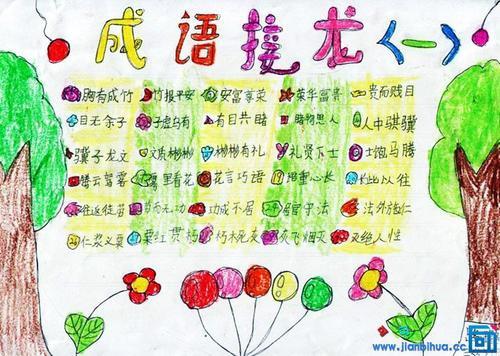 成语接龙(一)
胸有成竹 竹报平安 安富尊荣 荣华富贵 贵而贱目
目无余子 子虚乌有 有目共睹 睹物思人 人中骐骥
骥子龙文 文质彬彬 彬彬有礼 礼贤下士 士饱马腾
腾云驾雾 雾里看花 花言巧语 语重心长 长此以往
往返徒劳 劳而无功 功成不居 居官守法 法外施仁
仁浆义粟 粟红贯朽 朽木死灰 灰飞烟灭 灭绝人性
www.jianbihua.cc